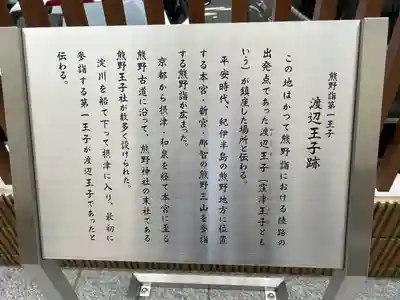 熊野詣第一王子
渡辺王子跡
この地はかつて熊野詣における陸路の
出発点であった渡辺王子(窪津王子とも
いう)が鎮座した場所と伝わる。
平安時代、紀伊半島の熊野地方に位置
する本宮・新宮・那智の熊野三山を参詣
する熊野詣が広まった。
京都から摂津・和泉を経て本宮に至る
熊野古道に沿って、熊野神社の末社である
熊野王子社が数多く設けられた。
淀川を船で下って摂津に入り、最初に
参詣する第一王子が渡辺王子であったと
伝わる。